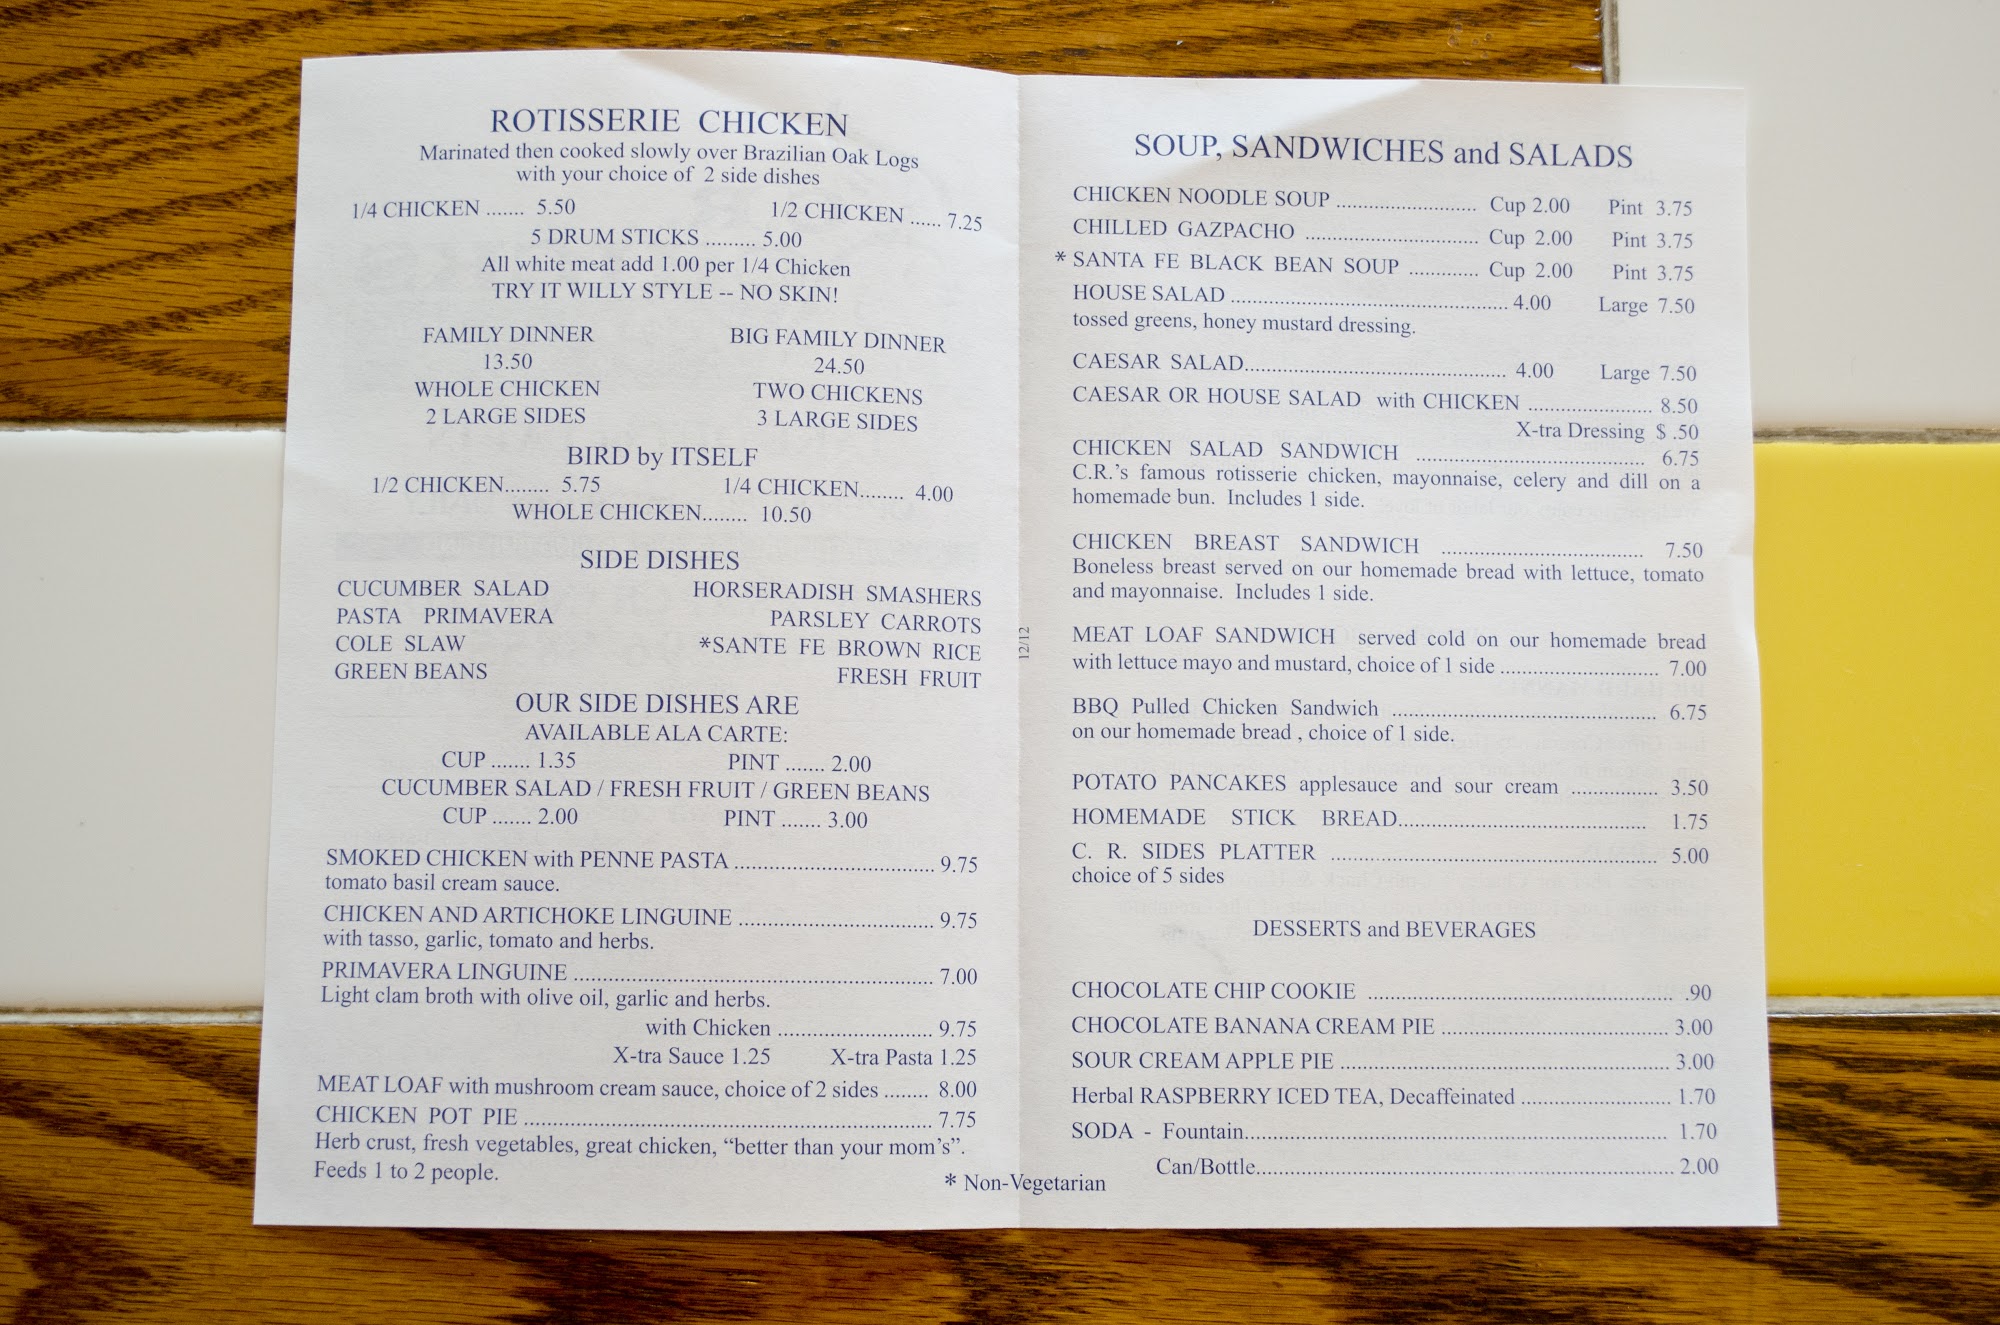 ROTISSERIE CHICKEN
Marinated then cooked slowly over Brazilian Oak Logs
with your choice of 2 side dishes
1/4 CHICKEN ....... 5.50 1/2 CHICKEN ...... 7.25
5 DRUM STICKS ......... 5.00
All white meat add 1.00 per 1/4 Chicken
TRY IT WILLY STYLE -- NO SKIN!
FAMILY DINNER
13.50
WHOLE CHICKEN
2 LARGE SIDES
BIG FAMILY DINNER
24.50
TWO CHICKENS
3 LARGE SIDES
BIRD by ITSELF
1/2 CHICKEN........ 5.75 1/4 CHICKEN........ 4.00
WHOLE CHICKEN........ 10.50
SIDE DISHES
CUCUMBER SALAD HORSERADISH SMASHERS
PASTA PRIMAVERA PARSLEY CARROTS
COLE SLAW *SANTE FE BROWN RICE
GREEN BEANS FRESH FRUIT
OUR SIDE DISHES ARE
AVAILABLE ALA CARTE:
CUP ....... 1.35 PINT ....... 2.00
CUCUMBER SALAD / FRESH FRUIT / GREEN BEANS
CUP ....... 2.00 PINT ....... 3.00
SMOKED CHICKEN with PENNE PASTA .................................. 9.75
tomato basil cream sauce.
CHICKEN AND ARTICHOKE LINGUINE ................................. 9.75
with tasso, garlic, tomato and herbs.
PRIMAVERA LINGUINE ............................................................. 7.00
Light clam broth with olive oil, garlic and herbs.
with Chicken .......................... 9.75
X-tra Sauce 1.25 X-tra Pasta 1.25
MEAT LOAF with mushroom cream sauce, choice of 2 sides ........ 8.00
CHICKEN POT PIE ..................................................................... 7.75
Herb crust, fresh vegetables, great chicken, “better than your mom’s”.
Feeds 1 to 2 people.
* Non-Vegetarian
12/12
SOUP, SANDWICHES and SALADS
CHICKEN NOODLE SOUP ........................ Cup 2.00 Pint 3.75
CHILLED GAZPACHO .............................. Cup 2.00 Pint 3.75
* SANTA FE BLACK BEAN SOUP ............ Cup 2.00 Pint 3.75
HOUSE SALAD ................................................ 4.00 Large 7.50
tossed greens, honey mustard dressing.
CAESAR SALAD............................................. 4.00 Large 7.50
CAESAR OR HOUSE SALAD with CHICKEN ..................... 8.50
X-tra Dressing $ .50
CHICKEN SALAD SANDWICH ....................................... 6.75
C.R.’s famous rotisserie chicken, mayonnaise, celery and dill on a
homemade bun. Includes 1 side.
CHICKEN BREAST SANDWICH .................................. 7.50
Boneless breast served on our homemade bread with lettuce, tomato
and mayonnaise. Includes 1 side.
MEAT LOAF SANDWICH served cold on our homemade bread
with lettuce mayo and mustard, choice of 1 side .......................... 7.00
BBQ Pulled Chicken Sandwich ............................................. 6.75
on our homemade bread , choice of 1 side.
POTATO PANCAKES applesauce and sour cream ............... 3.50
HOMEMADE STICK BREAD.......................................... 1.75
C. R. SIDES PLATTER ........................................................ 5.00
choice of 5 sides
DESSERTS and BEVERAGES
CHOCOLATE CHIP COOKIE ..................................................... .90
CHOCOLATE BANANA CREAM PIE ....................................... 3.00
SOUR CREAM APPLE PIE ......................................................... 3.00
Herbal RASPBERRY ICED TEA, Decaffeinated .......................... 1.70
SODA - Fountain......................................................................... 1.70
Can/Bottle........................................................................ 2.00